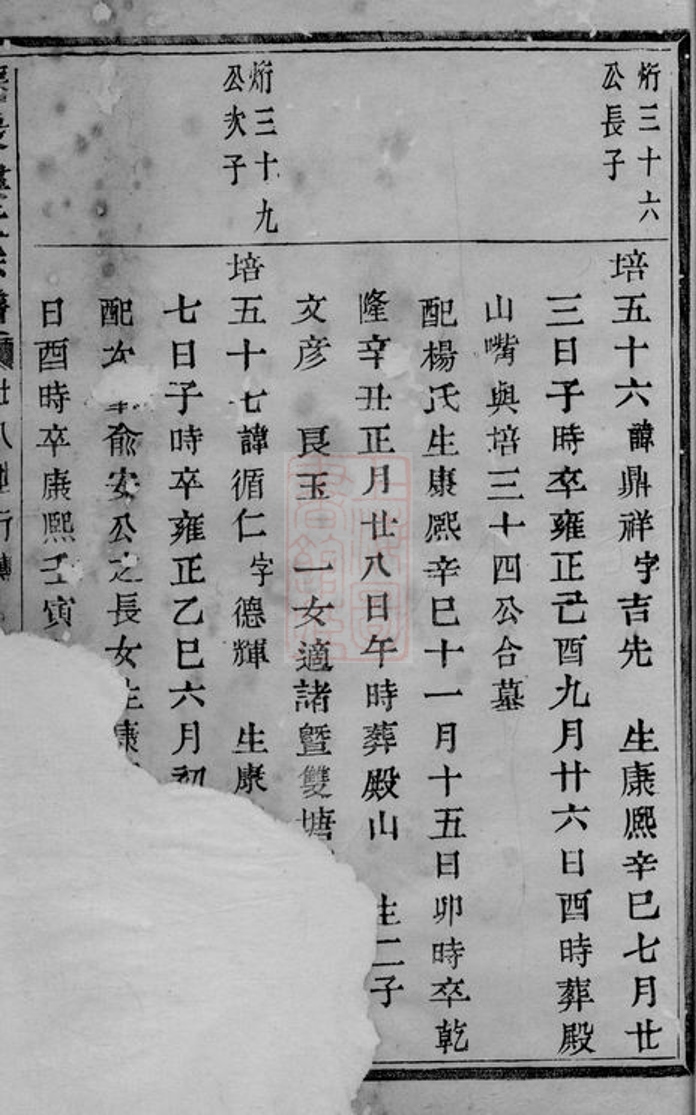 烆三十六
公長子
培五十六諱鼎祥字吉先 生康熙辛巳七月廿
三日子時卒雍正己酉九月廿六日酉時葬殿
山嘴與培三十四公合墓
配楊氏生康熙辛巳十一月十五日卯時卒乾
隆辛丑正月廿八日午時葬殿山 生二子
文彥 良玉 一女適諸暨雙塘
烆三十九
公次子
培五十七諱循仁字德輝 生康
七日子時卒雍正乙巳六月初
配 俞安公之長女生康
日酉時卒康熙壬寅